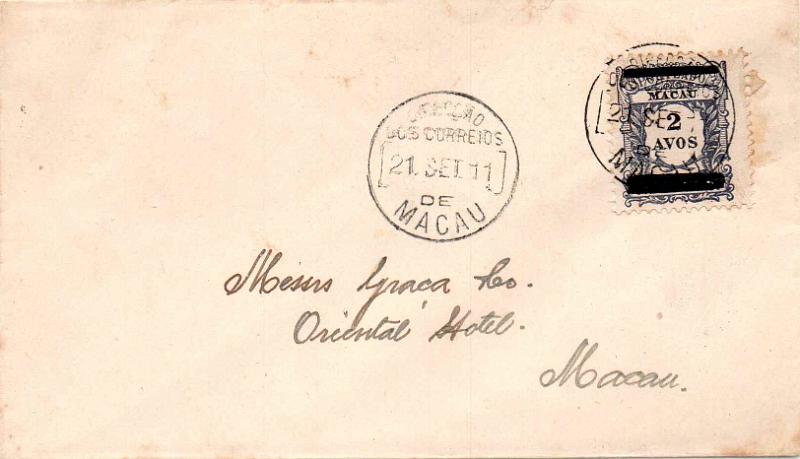 DIRECÇÃO
DOS CORREIOS
21. SET. 11
DE
MACAU
MACAU
2
AVOS
Messrs Graça & Co.
Oriental Hotel.
Macau.